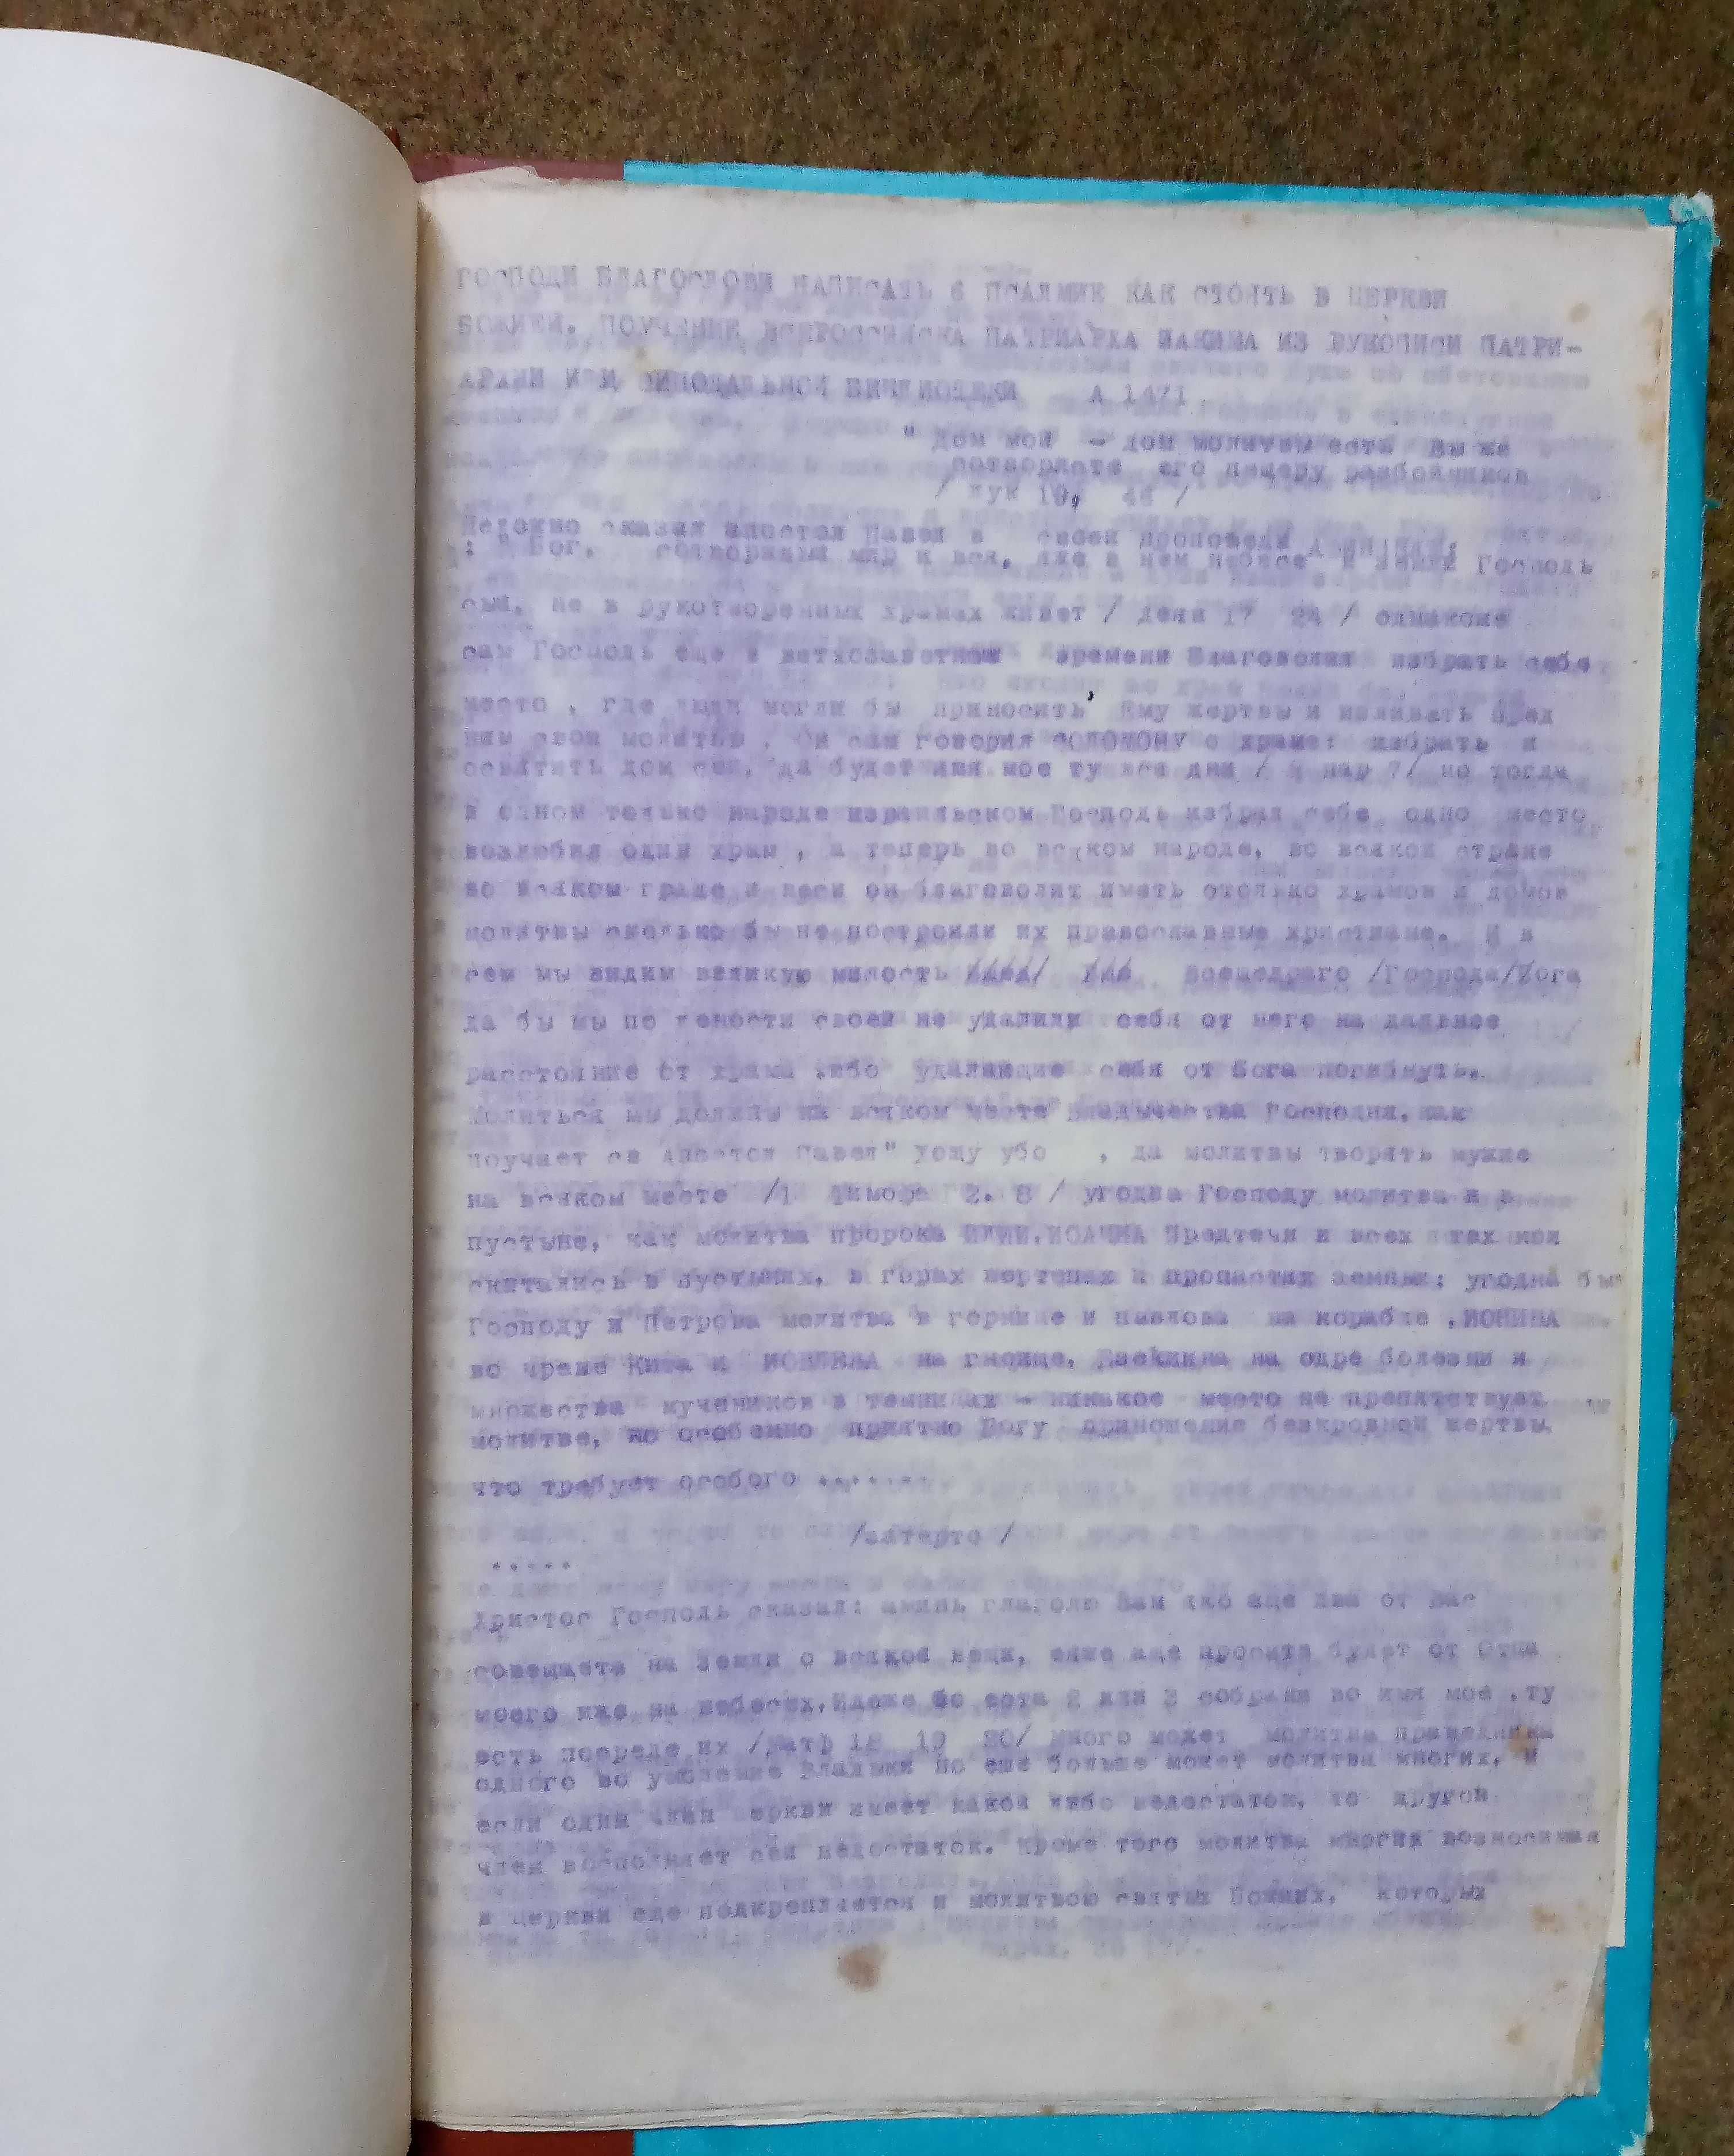 ГОСПОДИ БЛАГОСЛОВИ НАПИСАТЬ 6 ПСАЛМИЕ КАК СТОЯТЬ В ЦЕРКВИ
БОЖИЕЙ. ПОУЧЕНИЕ ПАТРИАРХА ИЗ РУКОПИСИ ПАТРИ-
СИНОДАЛЬНОЙ БИБЛИОТЕКИ А 1471
" Дом мой - дом молитвы есть Вы же
его пещеру разбойников
/ Лук 19, 46 /
сказал апостол Павел в своей проповеди
: " Бог, сотворивый мир и вся, яже в нем небесе и земли Господь
сый, не в рукотворенных храмах живет / Деян 17 24 / однакоже
сам Господь еще в ветхозаветном времени Благоволил избрать себе
место , где люди могли бы приносить Ему жертвы и изливать пред
ним свои молитвы . Он сам говорил СОЛОМОНУ о храме: избрать и
освятить дом сей, да будет имя мое ту вся дни / пар 7/ но тогда
в одном только народе израильском Господь избрал себе одно место
возлюбил один храм , а теперь во всяком народе, во всякой стране
во всяком граде и веси он благоволит иметь столько храмов и домов
молитвы сколько бы не построили их православные христиане. И в
сем мы видим великую милость Всещедраго /Господа/Бога
да бы мы по своей не удалили себя от него на дальнее
расстояние от храма ибо удаляющие себя от Бога погибнуть.
Молиться мы должны на всяком месте Владычества Господня, как
поучает св Апостол Павел" Хощу убо , да молитвы творять мужие
на всяком месте /1 Тимофе 2. 8 / угодна Господу молитва и в
пустыне, как молитва пророка ИЛИИ,ИОАННА Предтечи и всех тех кои
скитались в пустынях, в горах вертепах и пропастях земных; угодна бы
Господу и Петрова молитва в горнице и павлова на корабле ,ИОНИНА
во чреве Кита и ИОВЛЕВА на гноище, на одре болезни и
множества мучеников в темницах - никакое место не препятствует
молитве, но особенно приятно Богу приношение безкровной жертвы,
что требует особого ........
/затерто /
.....
Христос Господь сказал: аминь глаголю Вам яко аще два от вас
совещаста на Земли о всякой вещи, еяже аще просита будет от Отца
моего иже на небесех,Идеже бо еста 2 или 3 собрани во имя мое ,ту
есть посреде их /Матф 18 19 20/ Много может молитва праведника
одного во умоление Владыки но еще больше может молитва многих, и
если один член церкви имеет какой либо недостаток, то другой
член восполняет сей недостаток. Кроме того молитва многих возносимая
в Церкви еще подкрепляется и молитвою святых Божиих, которых